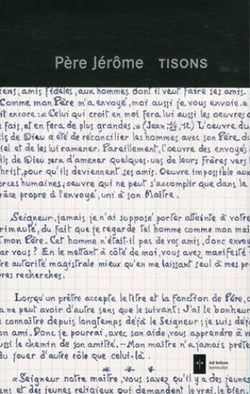 Père Jérôme TISONS
ens, amis fidèles, aux hommes dont il veut faire ses amis.
Comme mon Père m'a envoyé, moi aussi je vous envoie.
it encore: "Celui qui croit en moi fera lui aussi les oeuvres
e fais, et en fera de plus grandes." (Jean 14, 12) L'oeuvre du
ls de Dieu a été de réconcilier les hommes avec son Père du
iel et de les lui ramener. Pareillement, l'oeuvre des envoyés
ils de Dieu sera d'amener quelques-uns de leurs frères vers
hrist, pour qu'ils deviennent ses amis. Oeuvre impossible aux
orces humaines, oeuvre qui ne peut s'accomplir que dans la
râce propre à l'envoyé, uni à son Maître.
Seigneur, jamais je n'ai supposé porter atteinte à votre
rimauté, du fait que je regarde tel homme comme mon maî
t mon Père. Cet homme n'était-il pas de vos amis, donc envoy
ar vous? En le mettant à côté de moi, vous avez manifesté
tre autorité magistrale mieux qu'en me laissant seul à mes p
vres recherches.
Lorsqu'un prêtre accepte le titre et la fonction de Père,
la ne peut avoir d'autre sens que le suivant: J'ai le bonheur
e connaître depuis longtemps déjà le Seigneur; je suis dév
on ami. Donc je pourrai, avec son aide, vous apprendre à v
ussi le chemin de son amitié. — Mon maître n'a jamais préte
du jouer d'autre rôle que celui-là.
"Seigneur notre maître, vous savez qu'il y a des jeunes
ens et des jeunes religieux qui demandent le vrai, le bien
Ad Solem